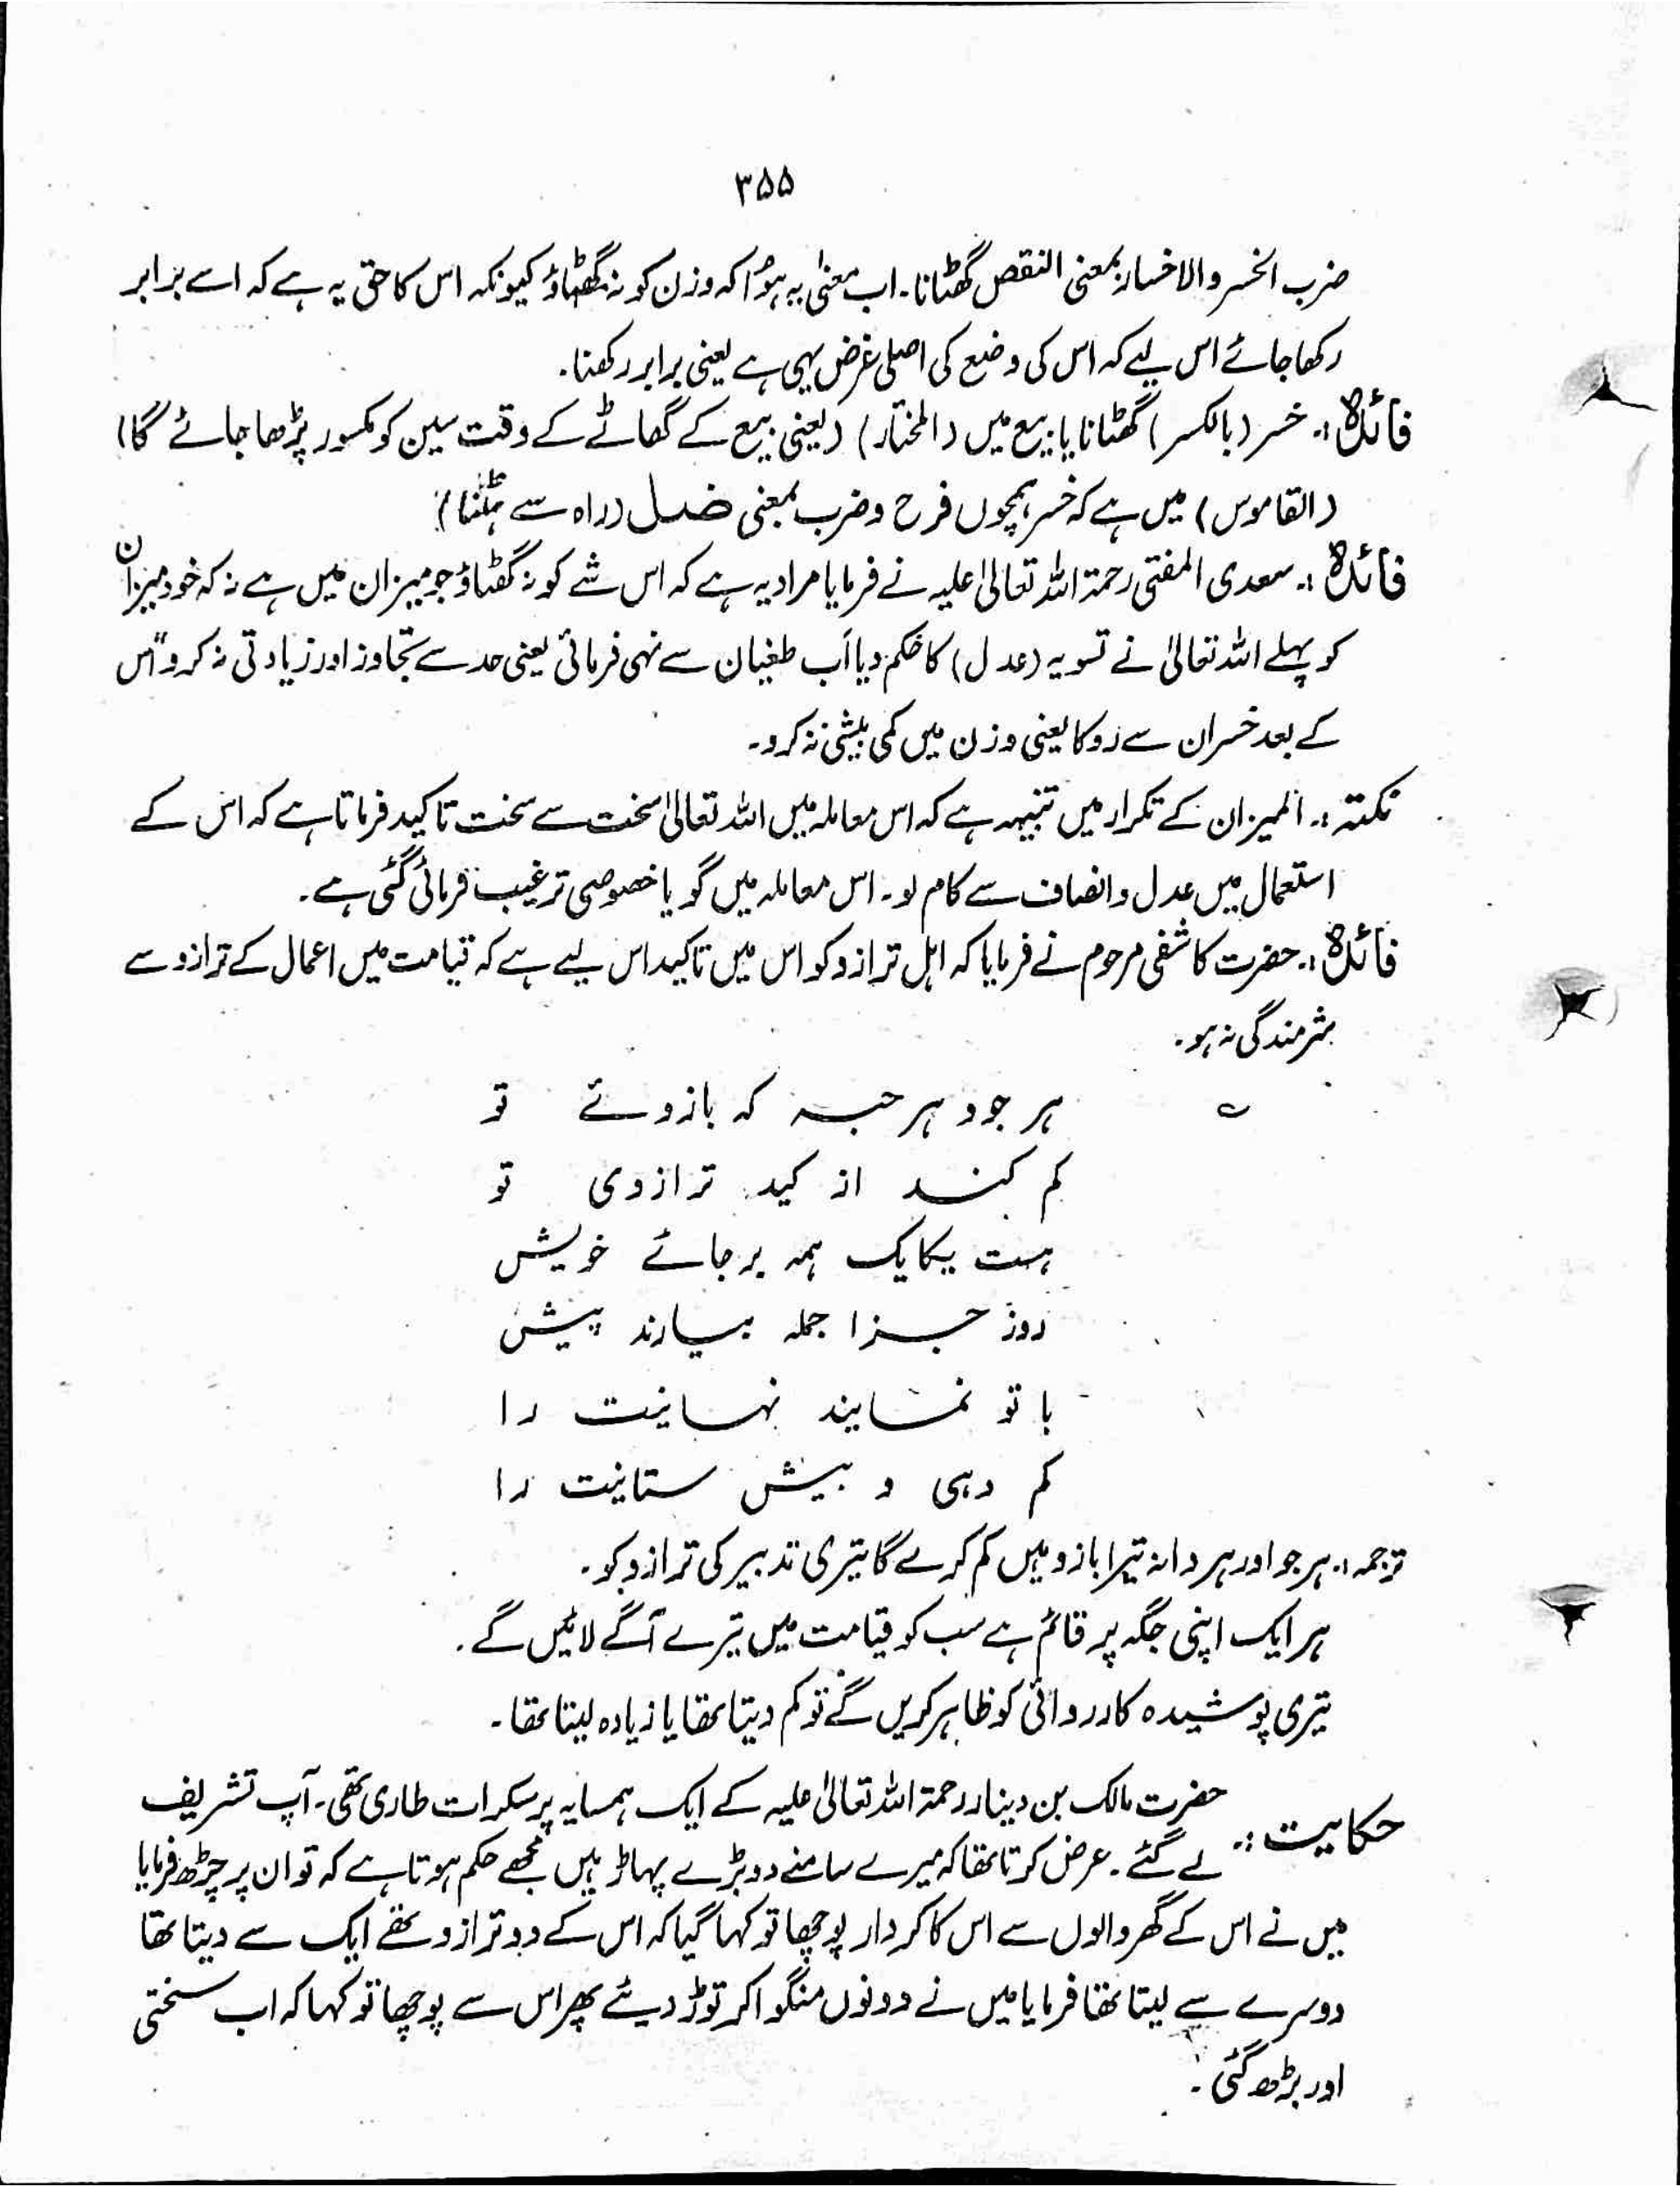 ۳۵۵
ضرب الخسر والاخسار بمعنی النقص گھٹانا۔ اب معنیٰ یہ ہوُا کہ وزن کو نہ گھٹاؤ کیونکہ اس کا حق یہ ہے کہ اسے برابر
رکھا جائے اس لیے کہ اس کی وضع کی اصلی غرض یہی ہے یعنی برابر رکھنا۔
فائدہ:۔ خسر (بالکسر) گھٹانا یا بیع میں (المختار) (یعنی بیع کے گھاٹے کے وقت سین کو مکسور پڑھا جائے گا)
(القاموس) میں ہے کہ خسر ہمچوں فرح و ضرب بمعنی ضل (راہ سے ہٹنا)
فائدہ:۔ سعدی المفتی رحمۃ اللہ تعالیٰ علیہ نے فرمایا مراد یہ ہے کہ اس شے کو نہ گھٹاؤ جو میزان میں ہے نہ کہ خود میزان
کو پہلے اللہ تعالیٰ نے تسویہ (عدل) کا حکم دیا اَب طغیان سے نہی فرمائی یعنی حد سے تجاوز اور زیادتی نہ کرو" اس
کے بعد خسران سے روکا یعنی وزن میں کمی بیشی نہ کرو۔
نکتہ:۔ المیزان کے تکرار میں تنبیہہ ہے کہ اس معاملہ میں اللہ تعالیٰ سخت سے سخت تاکید فرماتا ہے کہ اس کے
استعمال میں عدل و انصاف سے کام لو۔ اس معاملہ میں گویا خصوصی ترغیب فرمائی گئی ہے۔
فائدہ:۔ حضرت کاشفی مرحوم نے فرمایا کہ اہل ترازو کو اس میں تاکید اس لیے ہے کہ قیامت میں اعمال کے ترازو سے
شرمندگی نہ ہو۔
؎ ہر جو و ہر حبہ کہ بازوئے تو
کم کند از کید ترازوی تو
ہست یکایک ہمہ برجائے خویش
روز جزا جملہ بیارند پیش
با تو نمایند نہانیت را
کم دہی و بیش ستانیت را
ترجمہ:۔ ہر جو اور ہر دانہ تیرا بازو میں کم کرے گا تیری تدبیر کی ترازو کو۔
ہر ایک اپنی جگہ پر قائم ہے سب کو قیامت میں تیرے آگے لائیں گے۔
تیری پوشیدہ کارروائی کو ظاہر کریں گے تو کم دیتا تھا یا زیادہ لیتا تھا۔
حکایت:۔ حضرت مالک بن دینار رحمۃ اللہ تعالیٰ علیہ کے ایک ہمسایہ پر سکرات طاری تھی۔ آپ تشریف
لے گئے۔ عرض کرتا تھا کہ میرے سامنے دو بڑے پہاڑ ہیں مجھے حکم ہوتا ہے کہ تو ان پر چڑھ فرمایا
میں نے اس کے گھر والوں سے اس کا کردار پوچھا تو کہا گیا کہ اس کے دو ترازو تھے ایک سے دیتا تھا
دوسرے سے لیتا تھا فرمایا میں نے دونوں منگوا کر توڑ دیئے پھر اس سے پوچھا تو کہا کہ اب سختی
اور بڑھ گئی۔